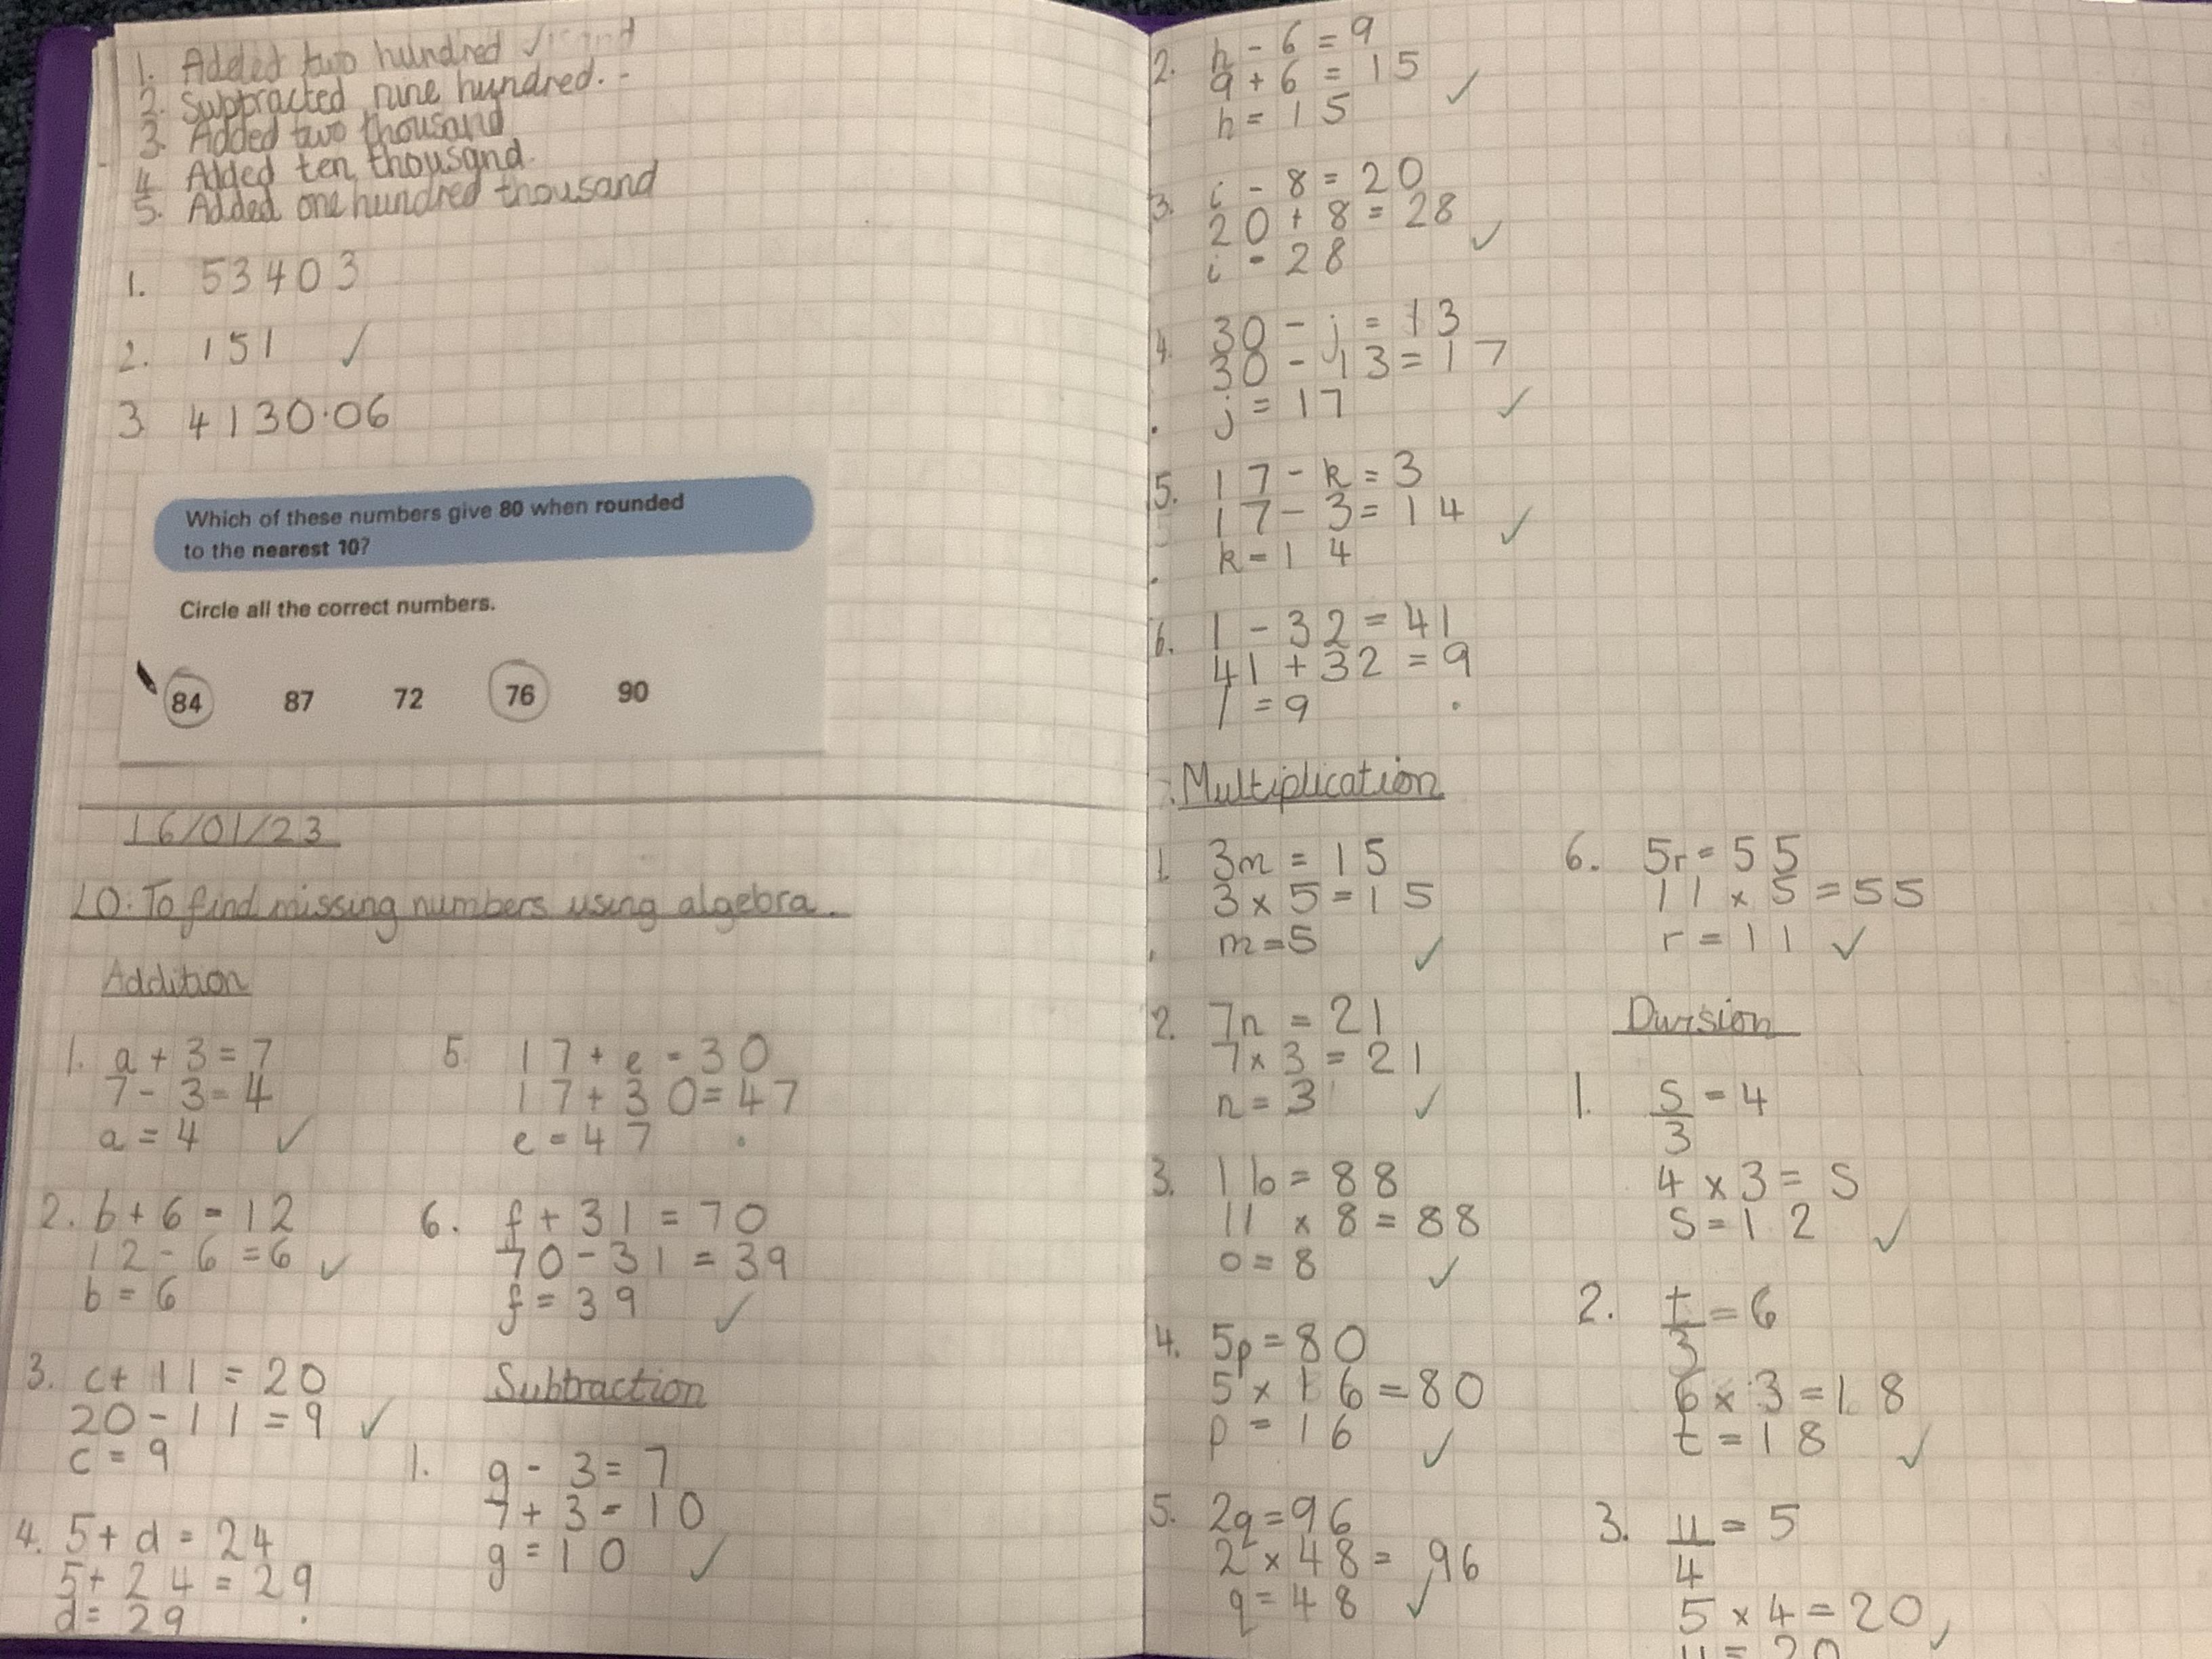 1. Added two hundred
2. Subtracted nine hundred.
3. Added two thousand
4. Added ten thousand.
5. Added one hundred thousand
1. 53403
2. 151 ✓
3. 4130.06
Which of these numbers give 80 when rounded
to the nearest 10?
Circle all the correct numbers.
84 87 72 76 90
16/01/23
LO: To find missing numbers using algebra.
Addition
1. a + 3 = 7
7 - 3 = 4
a = 4 ✓
2. b + 6 = 12
12 - 6 = 6 ✓
b = 6
3. c + 11 = 20
20 - 11 = 9 ✓
c = 9
4. 5 + d = 24
5 + 24 = 29
d = 29 .
5. 17 + e = 30
17 + 30 = 47
e = 47 .
6. f + 31 = 70
70 - 31 = 39
f = 39 ✓
Subtraction
1. g - 3 = 7
7 + 3 = 10
g = 10 ✓
2. h - 6 = 9
9 + 6 = 15 ✓
h = 15
3. i - 8 = 20
20 + 8 = 28 ✓
i = 28
4. 30 - j = 13
30 - 13 = 17
j = 17 ✓
5. 17 - k = 3
17 - 3 = 14 ✓
k = 14
6. l - 32 = 41
41 + 32 = 9
l = 9 .
Multiplication
1. 3m = 15
3 x 5 = 15
m = 5 ✓
2. 7n = 21
7 x 3 = 21
n = 3 ✓
3. 11o = 88
11 x 8 = 88
o = 8 ✓
4. 5p = 80
5 x 16 = 80
p = 16 ✓
5. 2q = 96
2 x 48 = 96
q = 48 ✓
6. 5r = 55
11 x 5 = 55
r = 11 ✓
Division
1. s = 4
3
4 x 3 = s
s = 12 ✓
2. t = 6
3
6 x 3 = 18
t = 18 ✓
3. u = 5
4
5 x 4 = 20 ✓
u = 20